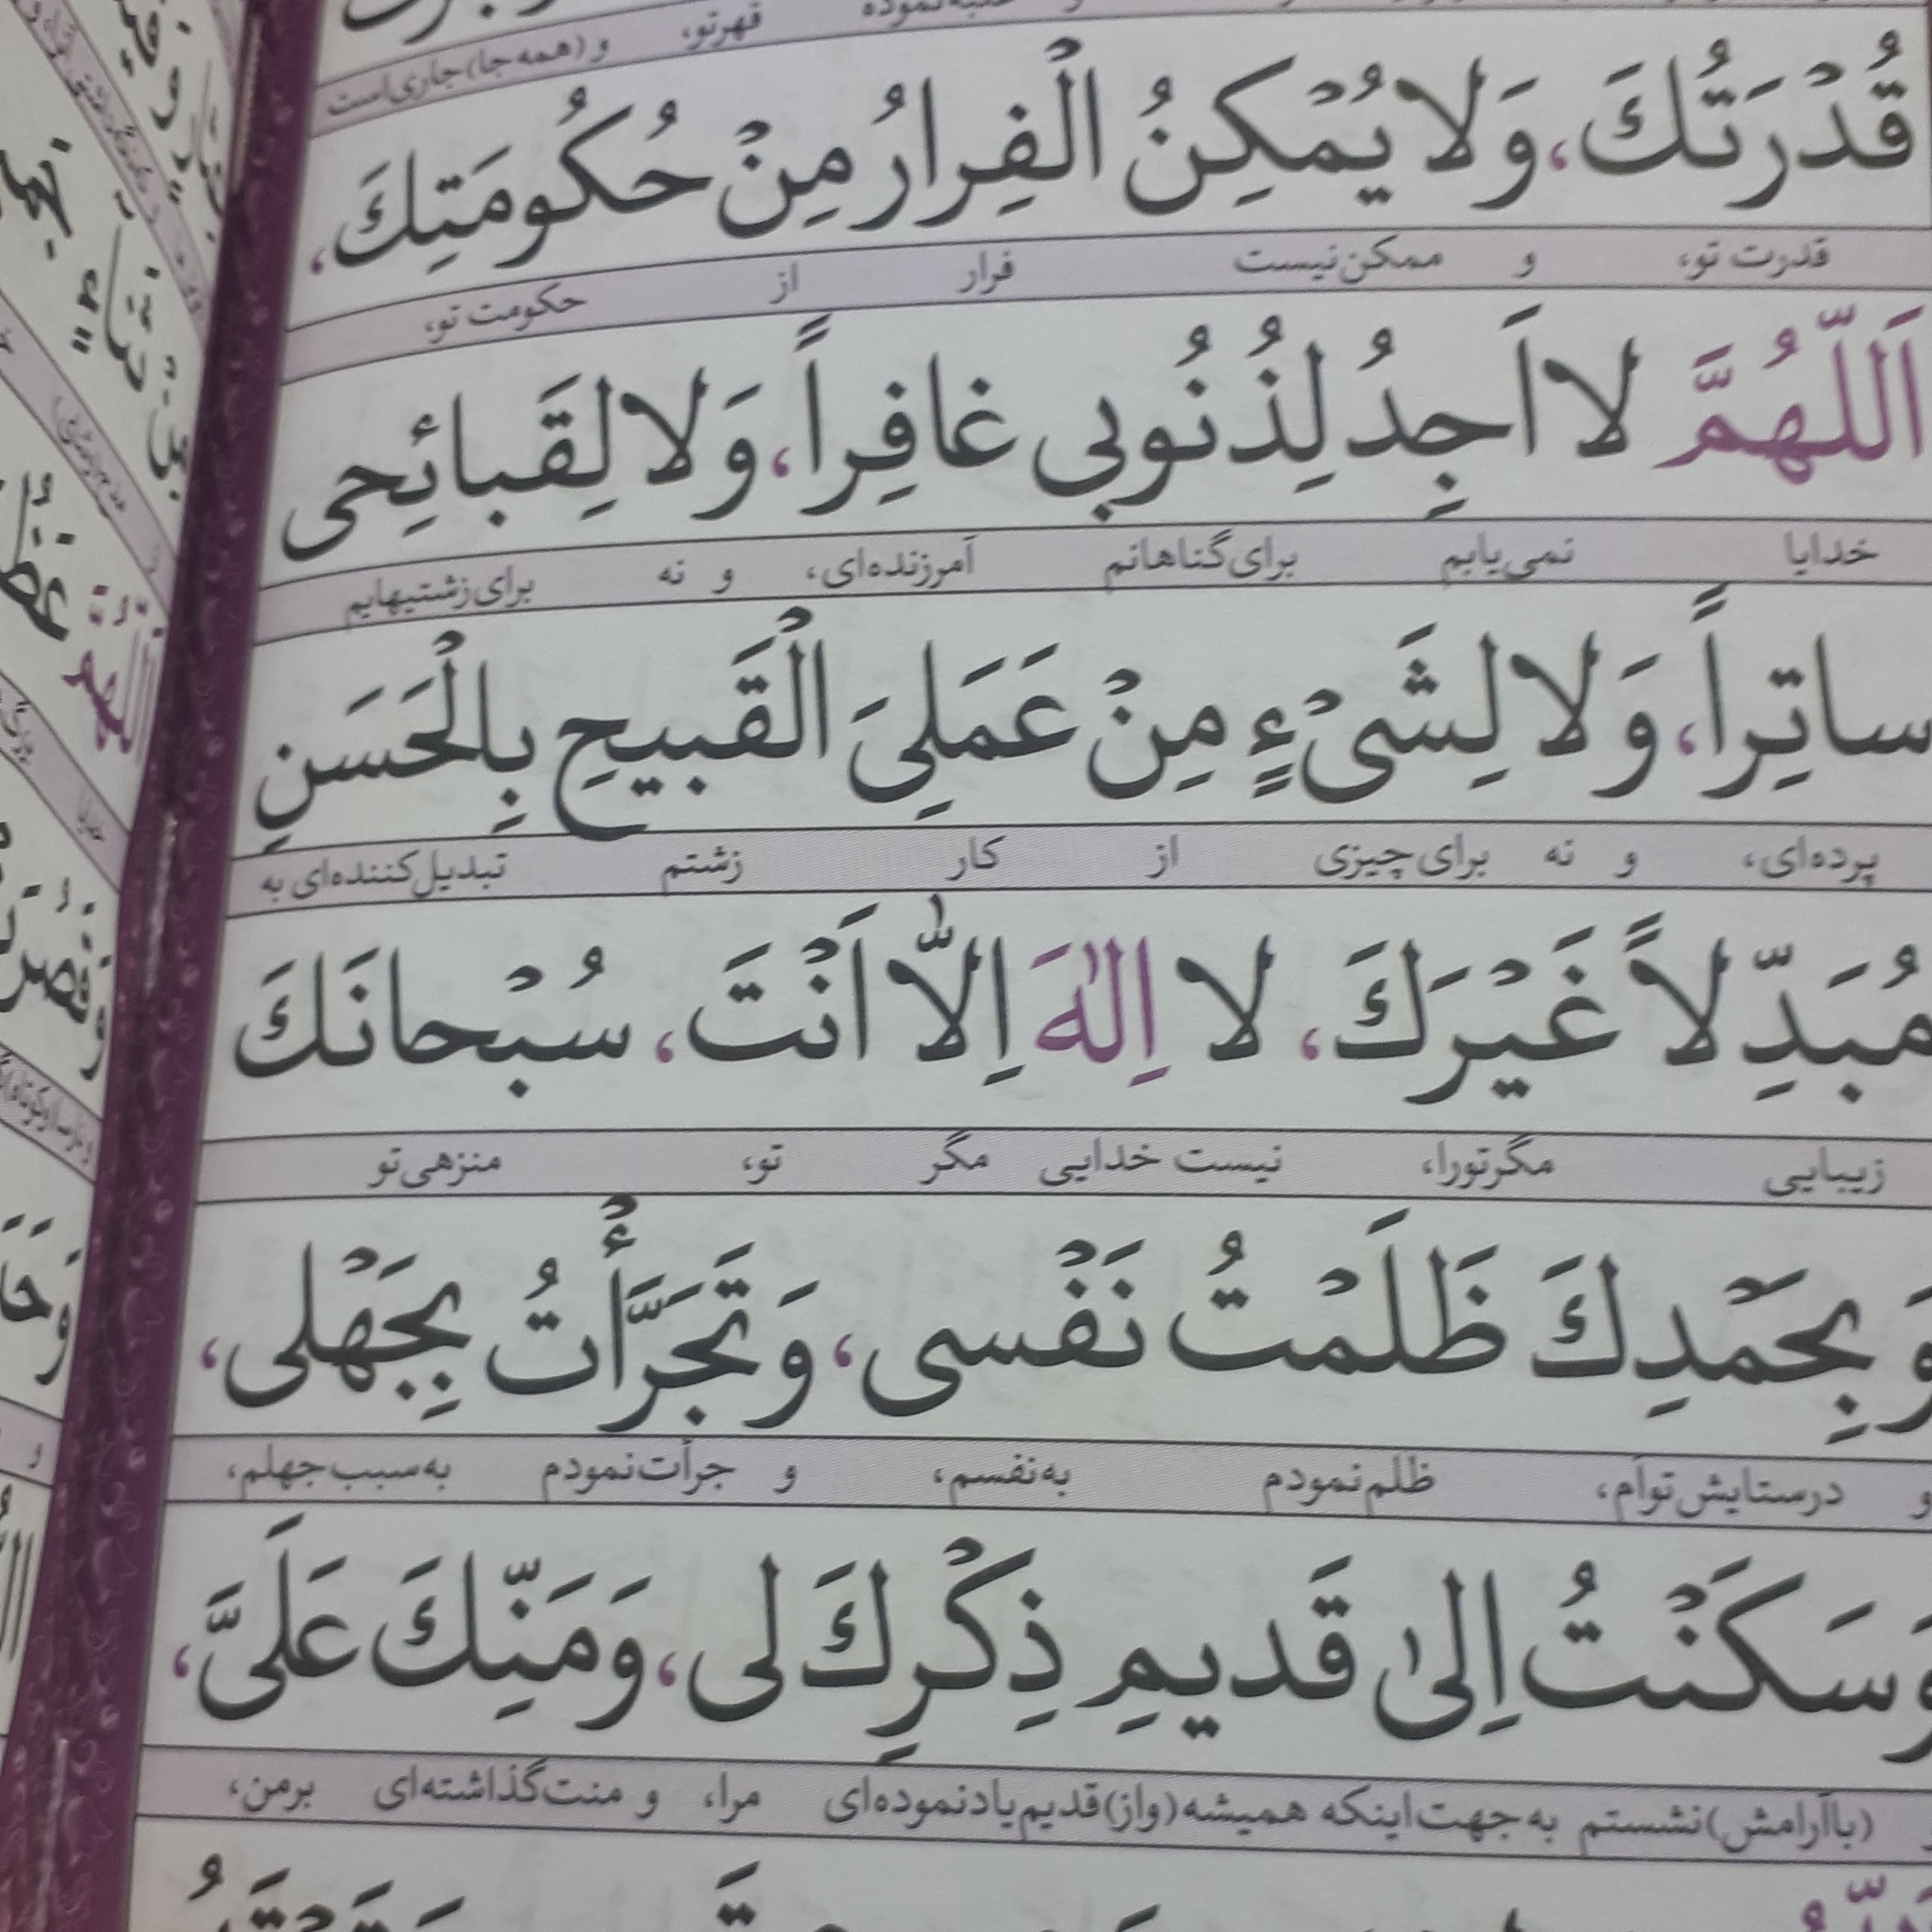 و (همه جا) جاری است
قهر تو،
قُدْرَتُكَ، وَلا يُمْكِنُ الْفِرارُ مِنْ حُكُومَتِكَ،
قدرت تو، و ممکن نیست فرار از حکومت تو،
اَللّهُمَّ لا اَجِدُ لِذُنُوبى غافِراً، وَلا لِقَبائِحى
خدایا نمی‌یابم برای گناهانم آمرزنده‌ای، و نه برای زشتیهایم
ساتِراً، وَلا لِشَىْءٍ مِنْ عَمَلِىَ الْقَبيحِ بِالْحَسَنِ
پرده‌ای، و نه برای چیزی از کار زشتم تبدیل کننده‌ای به
مُبَدِّلاً غَيْرَكَ، لا اِلٰهَ اِلّا اَنْتَ، سُبْحانَكَ
زیبایی مگر تو را، نیست خدایی مگر تو، منزهی تو
وَ بِحَمْدِكَ ظَلَمْتُ نَفْسى، وَ تَجَرَّأْتُ بِجَهْلى،
و در ستایش توام، ظلم نمودم به نفسم، و جرأت نمودم به سبب جهلم،
وَسَكَنْتُ اِلىٰ قَديمِ ذِكْرِكَ لى، وَمَنِّكَ عَلَىَّ،
(باآرامش) نشستم به جهت اینکه همیشه (واز) قدیم یاد نموده‌ای مرا، و منت گذاشته‌ای بر من،